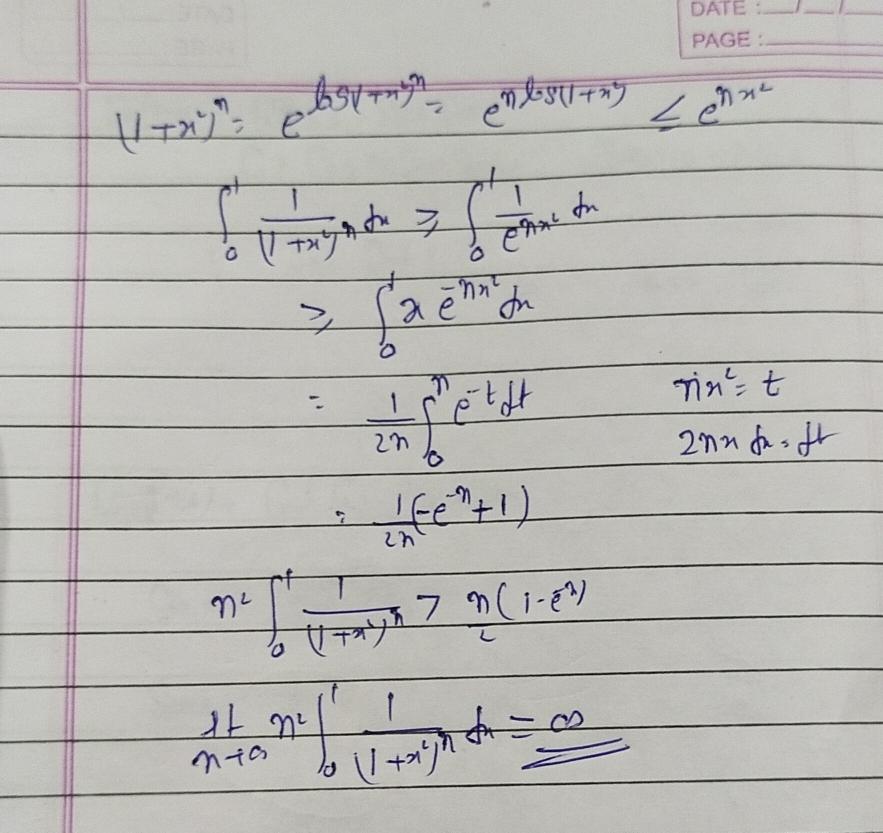 DATE : / /
PAGE :
(1+x²)ⁿ = e^{log(1+x²)ⁿ} = e^{n log(1+x²)} ≤ e^{nx²}
∫₀¹ 1/(1+x²)ⁿ dx ≥ ∫₀¹ 1/e^{nx²} dx
≥ ∫₀¹ x e^{-nx²} dx
= 1/2n ∫₀ⁿ e^{-t} dt nx² = t
2nx dx = dt
= 1/2n (-e^{-n}+1)
n² ∫₀¹ 1/(1+x²)ⁿ > n/2 (1-e^{-n})
lt n→∞ n² ∫₀¹ 1/(1+x²)ⁿ dx = ∞